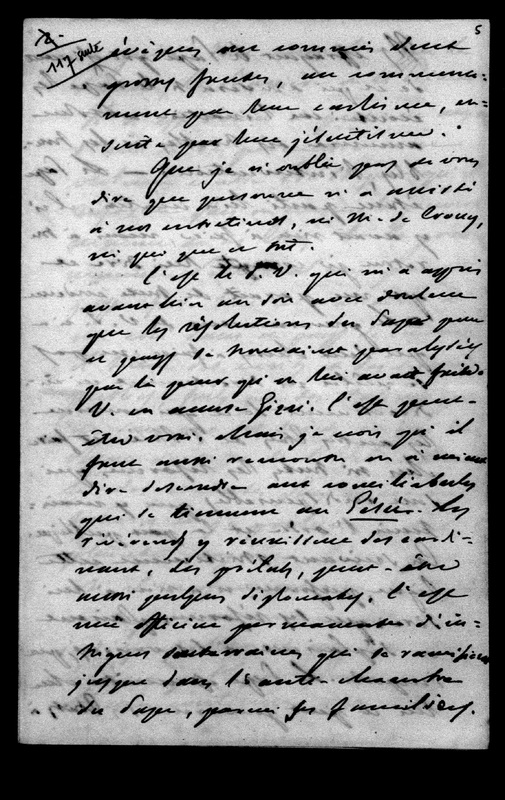 5
117 suite
évêques ont commis deux
grosses fautes, au commence-
ment par leur carlisme, en-
suite par leur jésuitisme.
Que je n'oublie pas de vous
dire que personne n'a assisté
à nos entretiens, ni M. de Crouy,
ni qui que ce soit.
C'est le P. V. qui m'a appris
avant hier au soir avec douleur
que les résolutions du Pape pour
se trouvaient paralysées
par la peur qu'on lui avait faite.
V. en accuse Gizzi. C'est peut-
être vrai. Mais je crois qu'il
faut aussi remonter ou à mieux
dire descendre aux conciliabules
qui se tiennent au Gésu. Les
révérends y réunissent des cardi-
naux, des prélats, peut-être
aussi quelques diplomates. C'est
une officine permanente d'in-
trigues souterraines qui se ramifient
jusque dans l'anti-chambre
du Pape, parmi ses familiers.